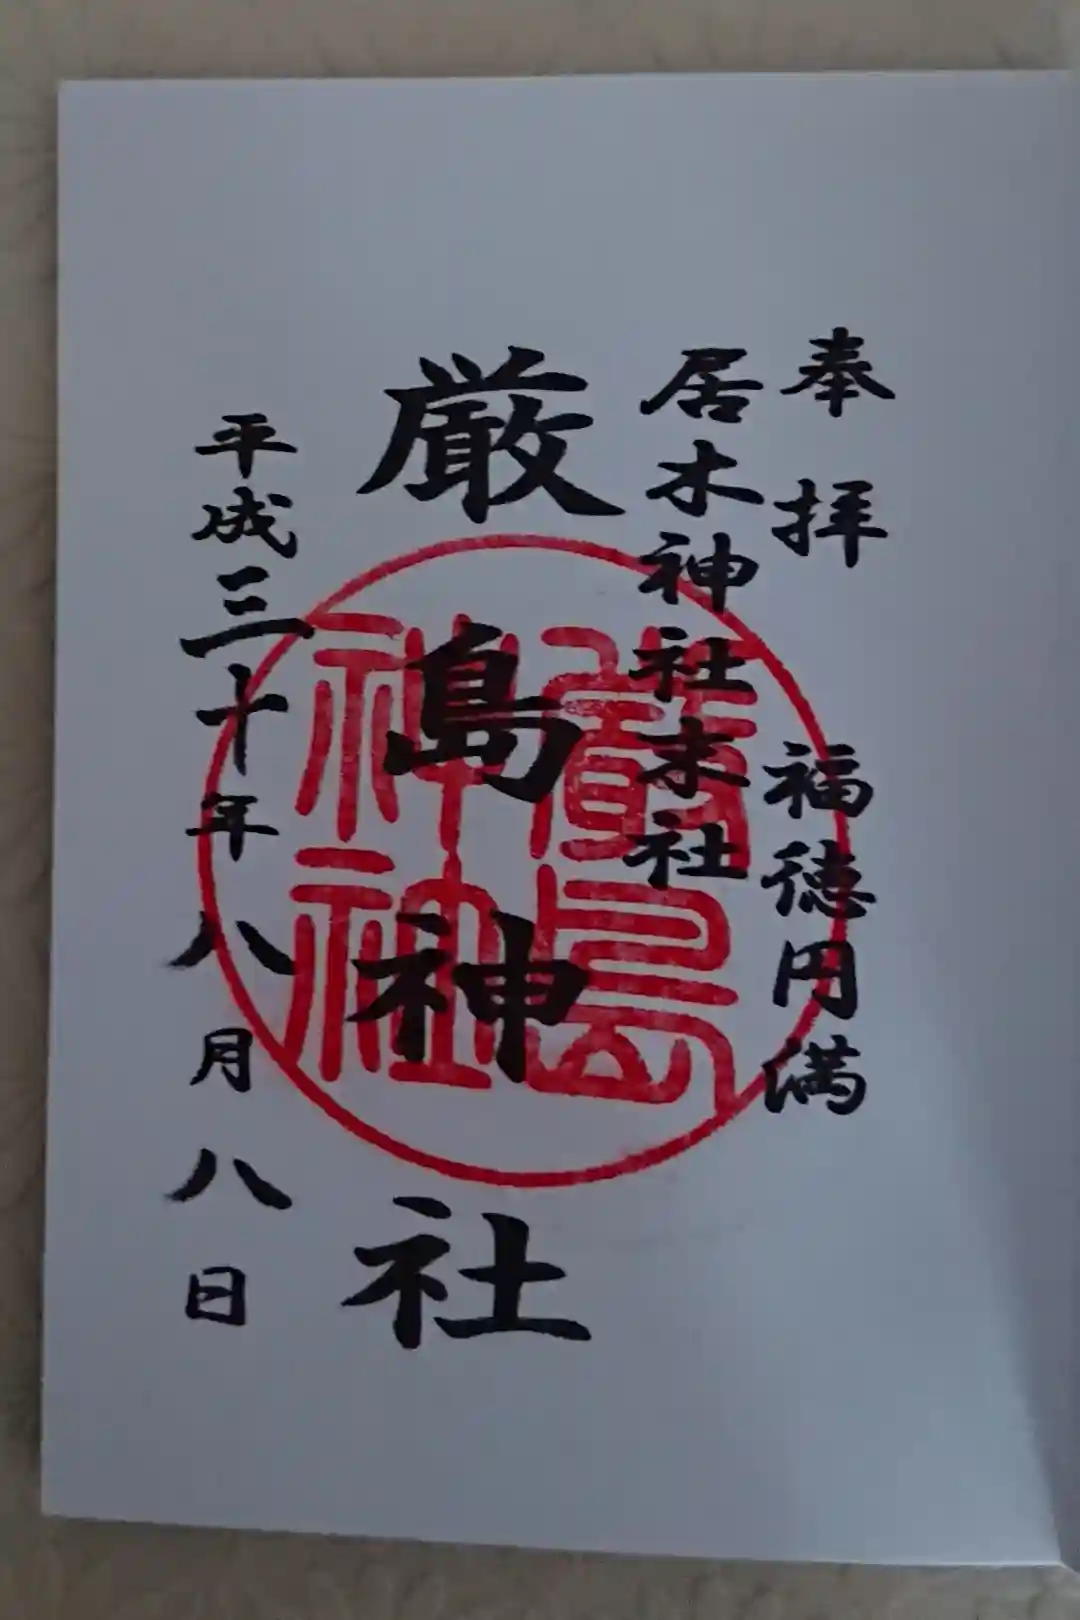 奉拝　福徳円満
居木神社末社
厳島神社
平成三十年八月八日
嚴島
神社